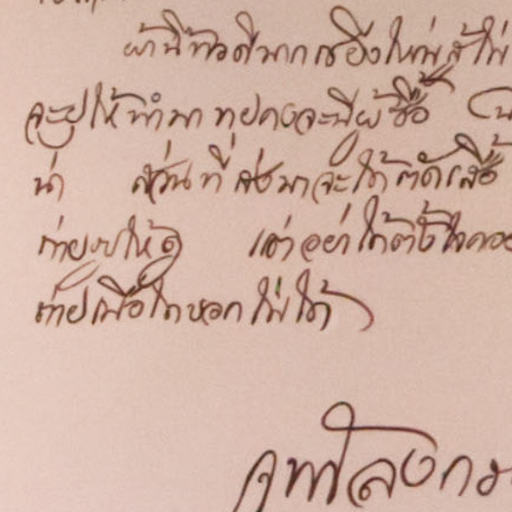 ผ้านี้ทอดีมาก เชียงใหม่สู้ไม่
จะยุให้ทำมาหุยคงจะมีผู้ซื้อ
น่า ส่วนที่ส่งมาจะได้ตัดเสื้อ
ถ่ายรูปให้ดู แต่อย่าได้ตั้งใจคอย
ถ่ายเมื่อใดบอกไม่ได้
จุฬาลงกร